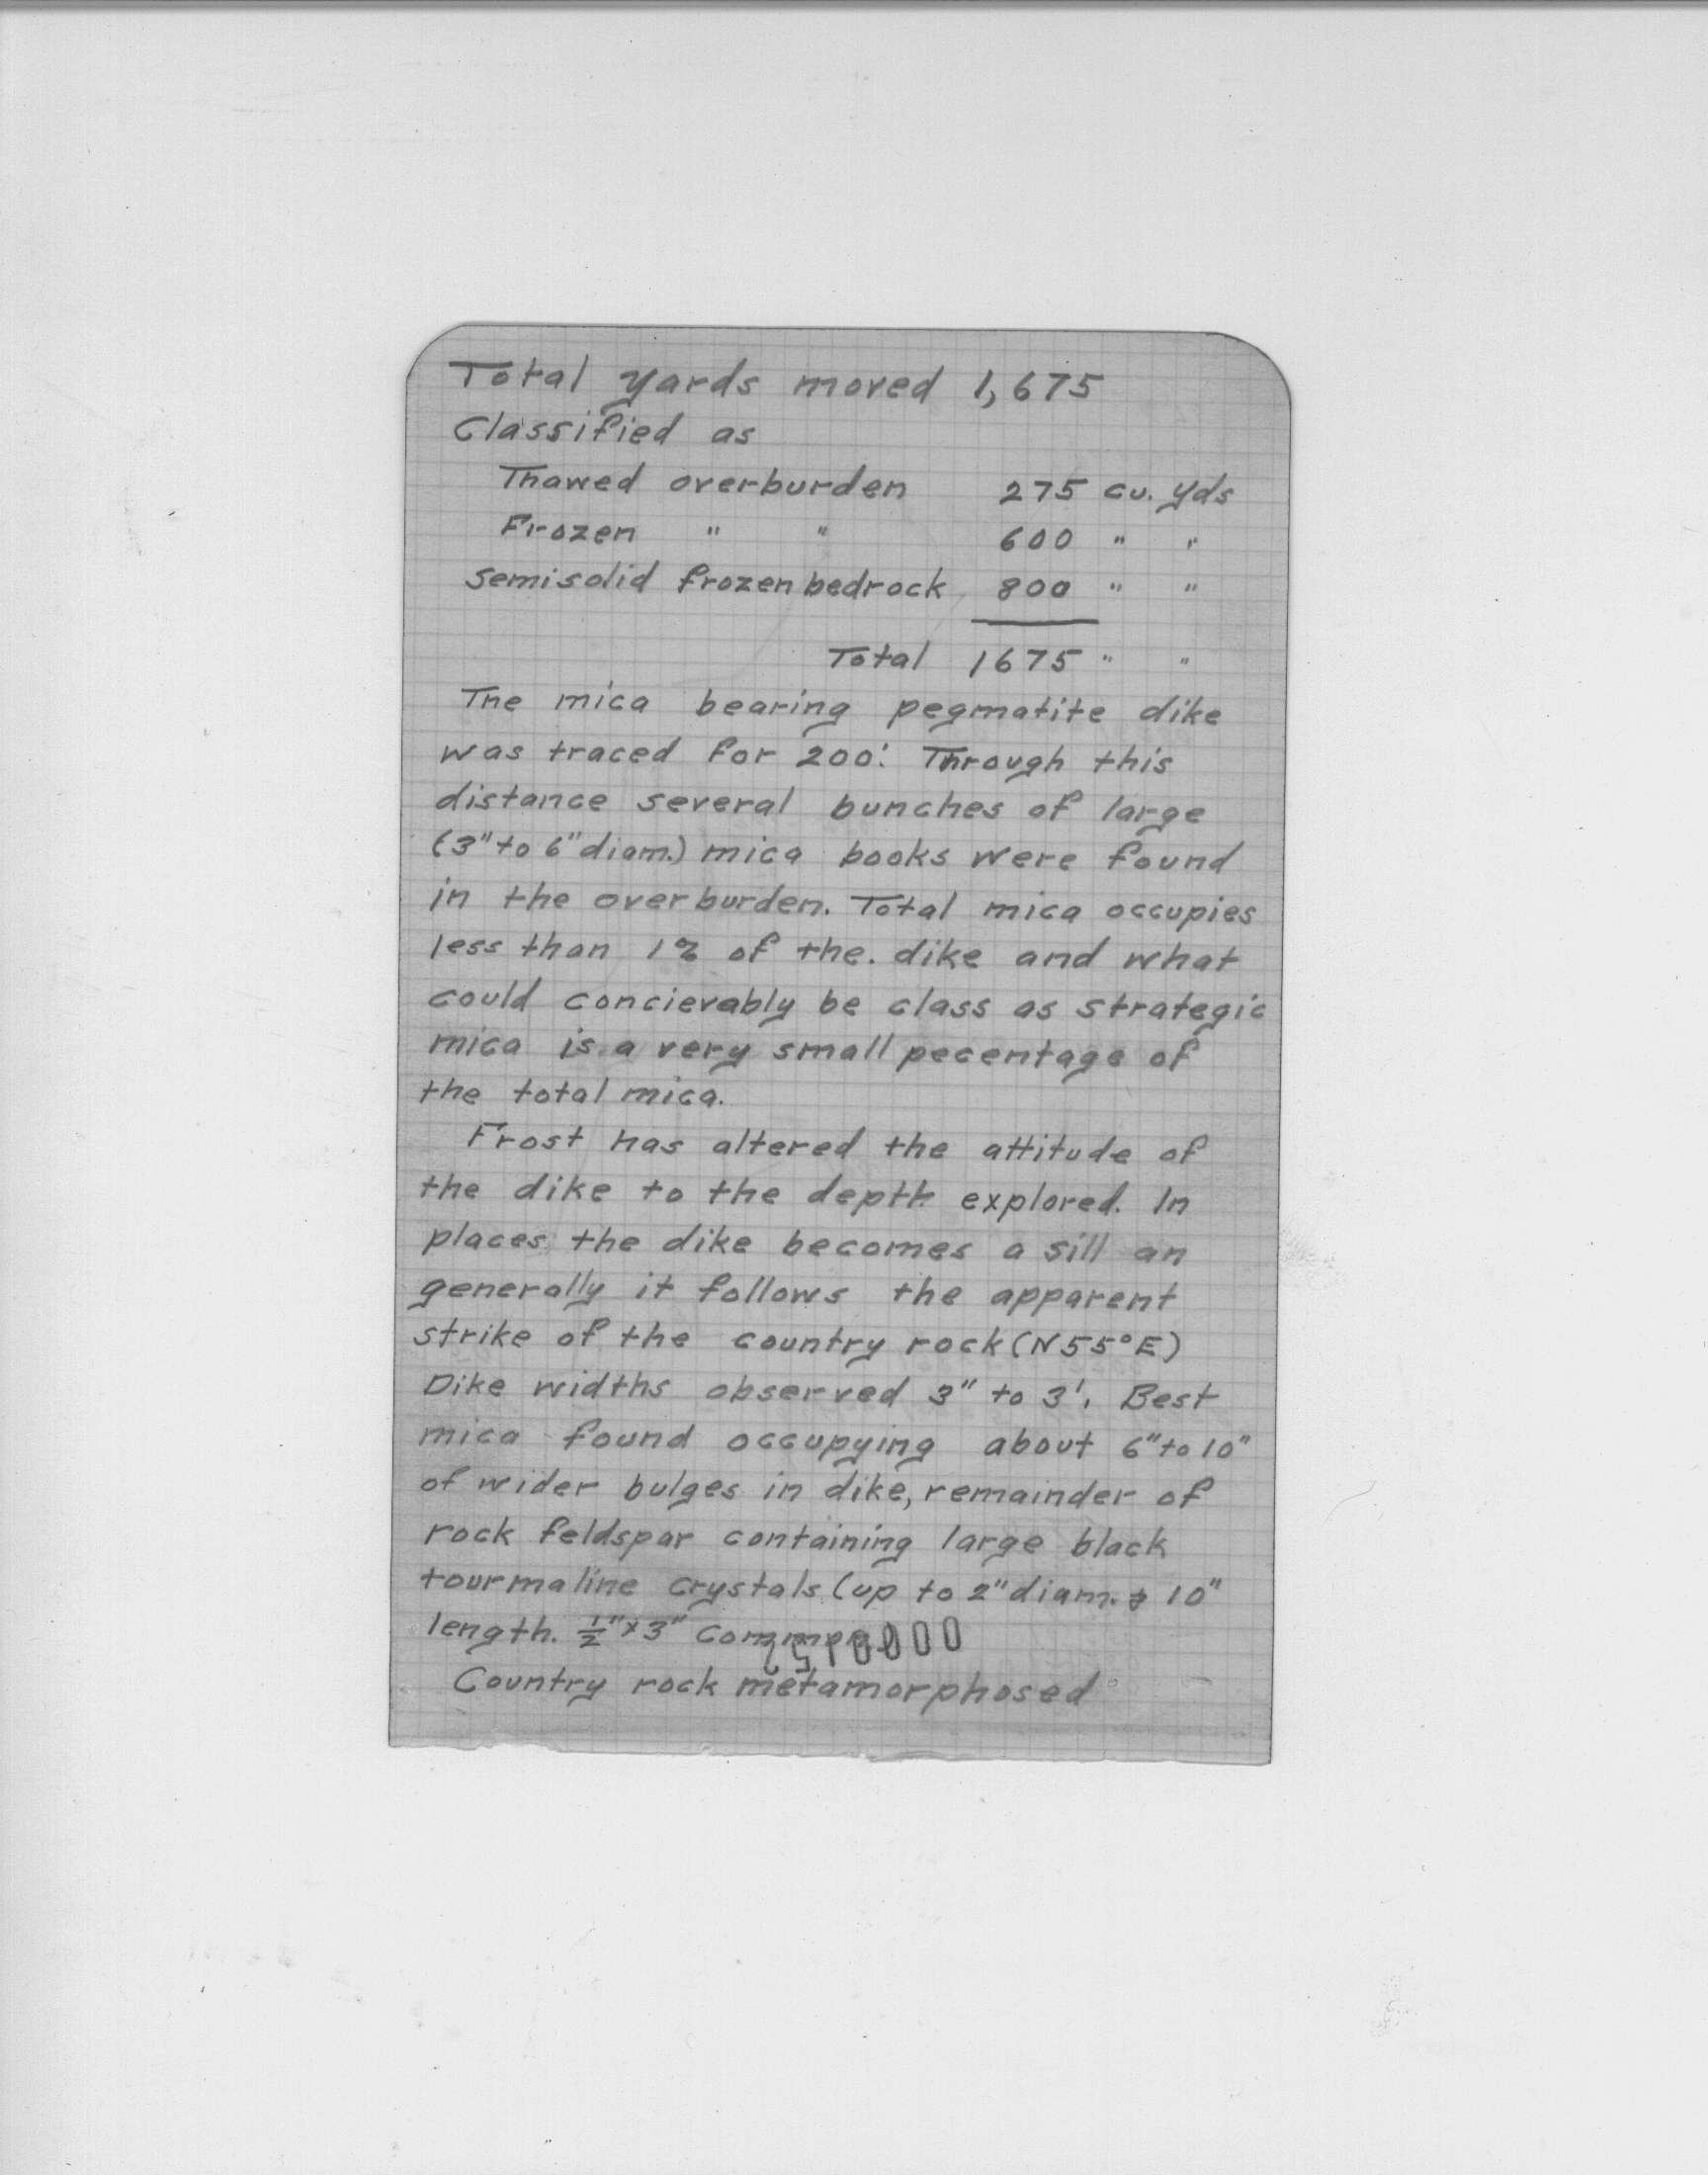 Total yards moved 1,675
Classified as
Thawed overburden 275 cu. yds
Frozen " " 600 " "
Semisolid frozen bedrock 800 " "
Total 1675 " "
The mica bearing pegmatite dike
was traced for 200'. Through this
distance several bunches of large
(3" to 6" diam.) mica books were found
in the overburden. Total mica occupies
less than 1% of the. dike and what
could concievably be class as strategic
mica is a very small pecentage of
the total mica.
Frost has altered the attitude of
the dike to the depth explored. In
places the dike becomes a sill an
generally it follows the apparent
strike of the country rock (N55°E)
Dike widths observed 3" to 3'. Best
mica found occupying about 6" to 10"
of wider bulges in dike, remainder of
rock feldspar containing large black
tourmaline crystals (up to 2" diam. & 10"
length. ½" x 3" common
Country rock metamorphosed